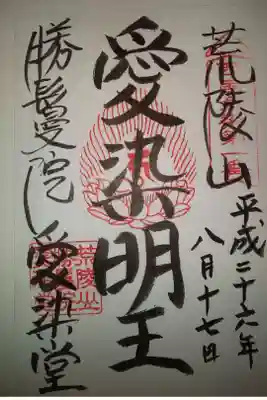 荒陵山
平成二十六年
八月十七日
愛染明王
勝鬘院 愛染堂